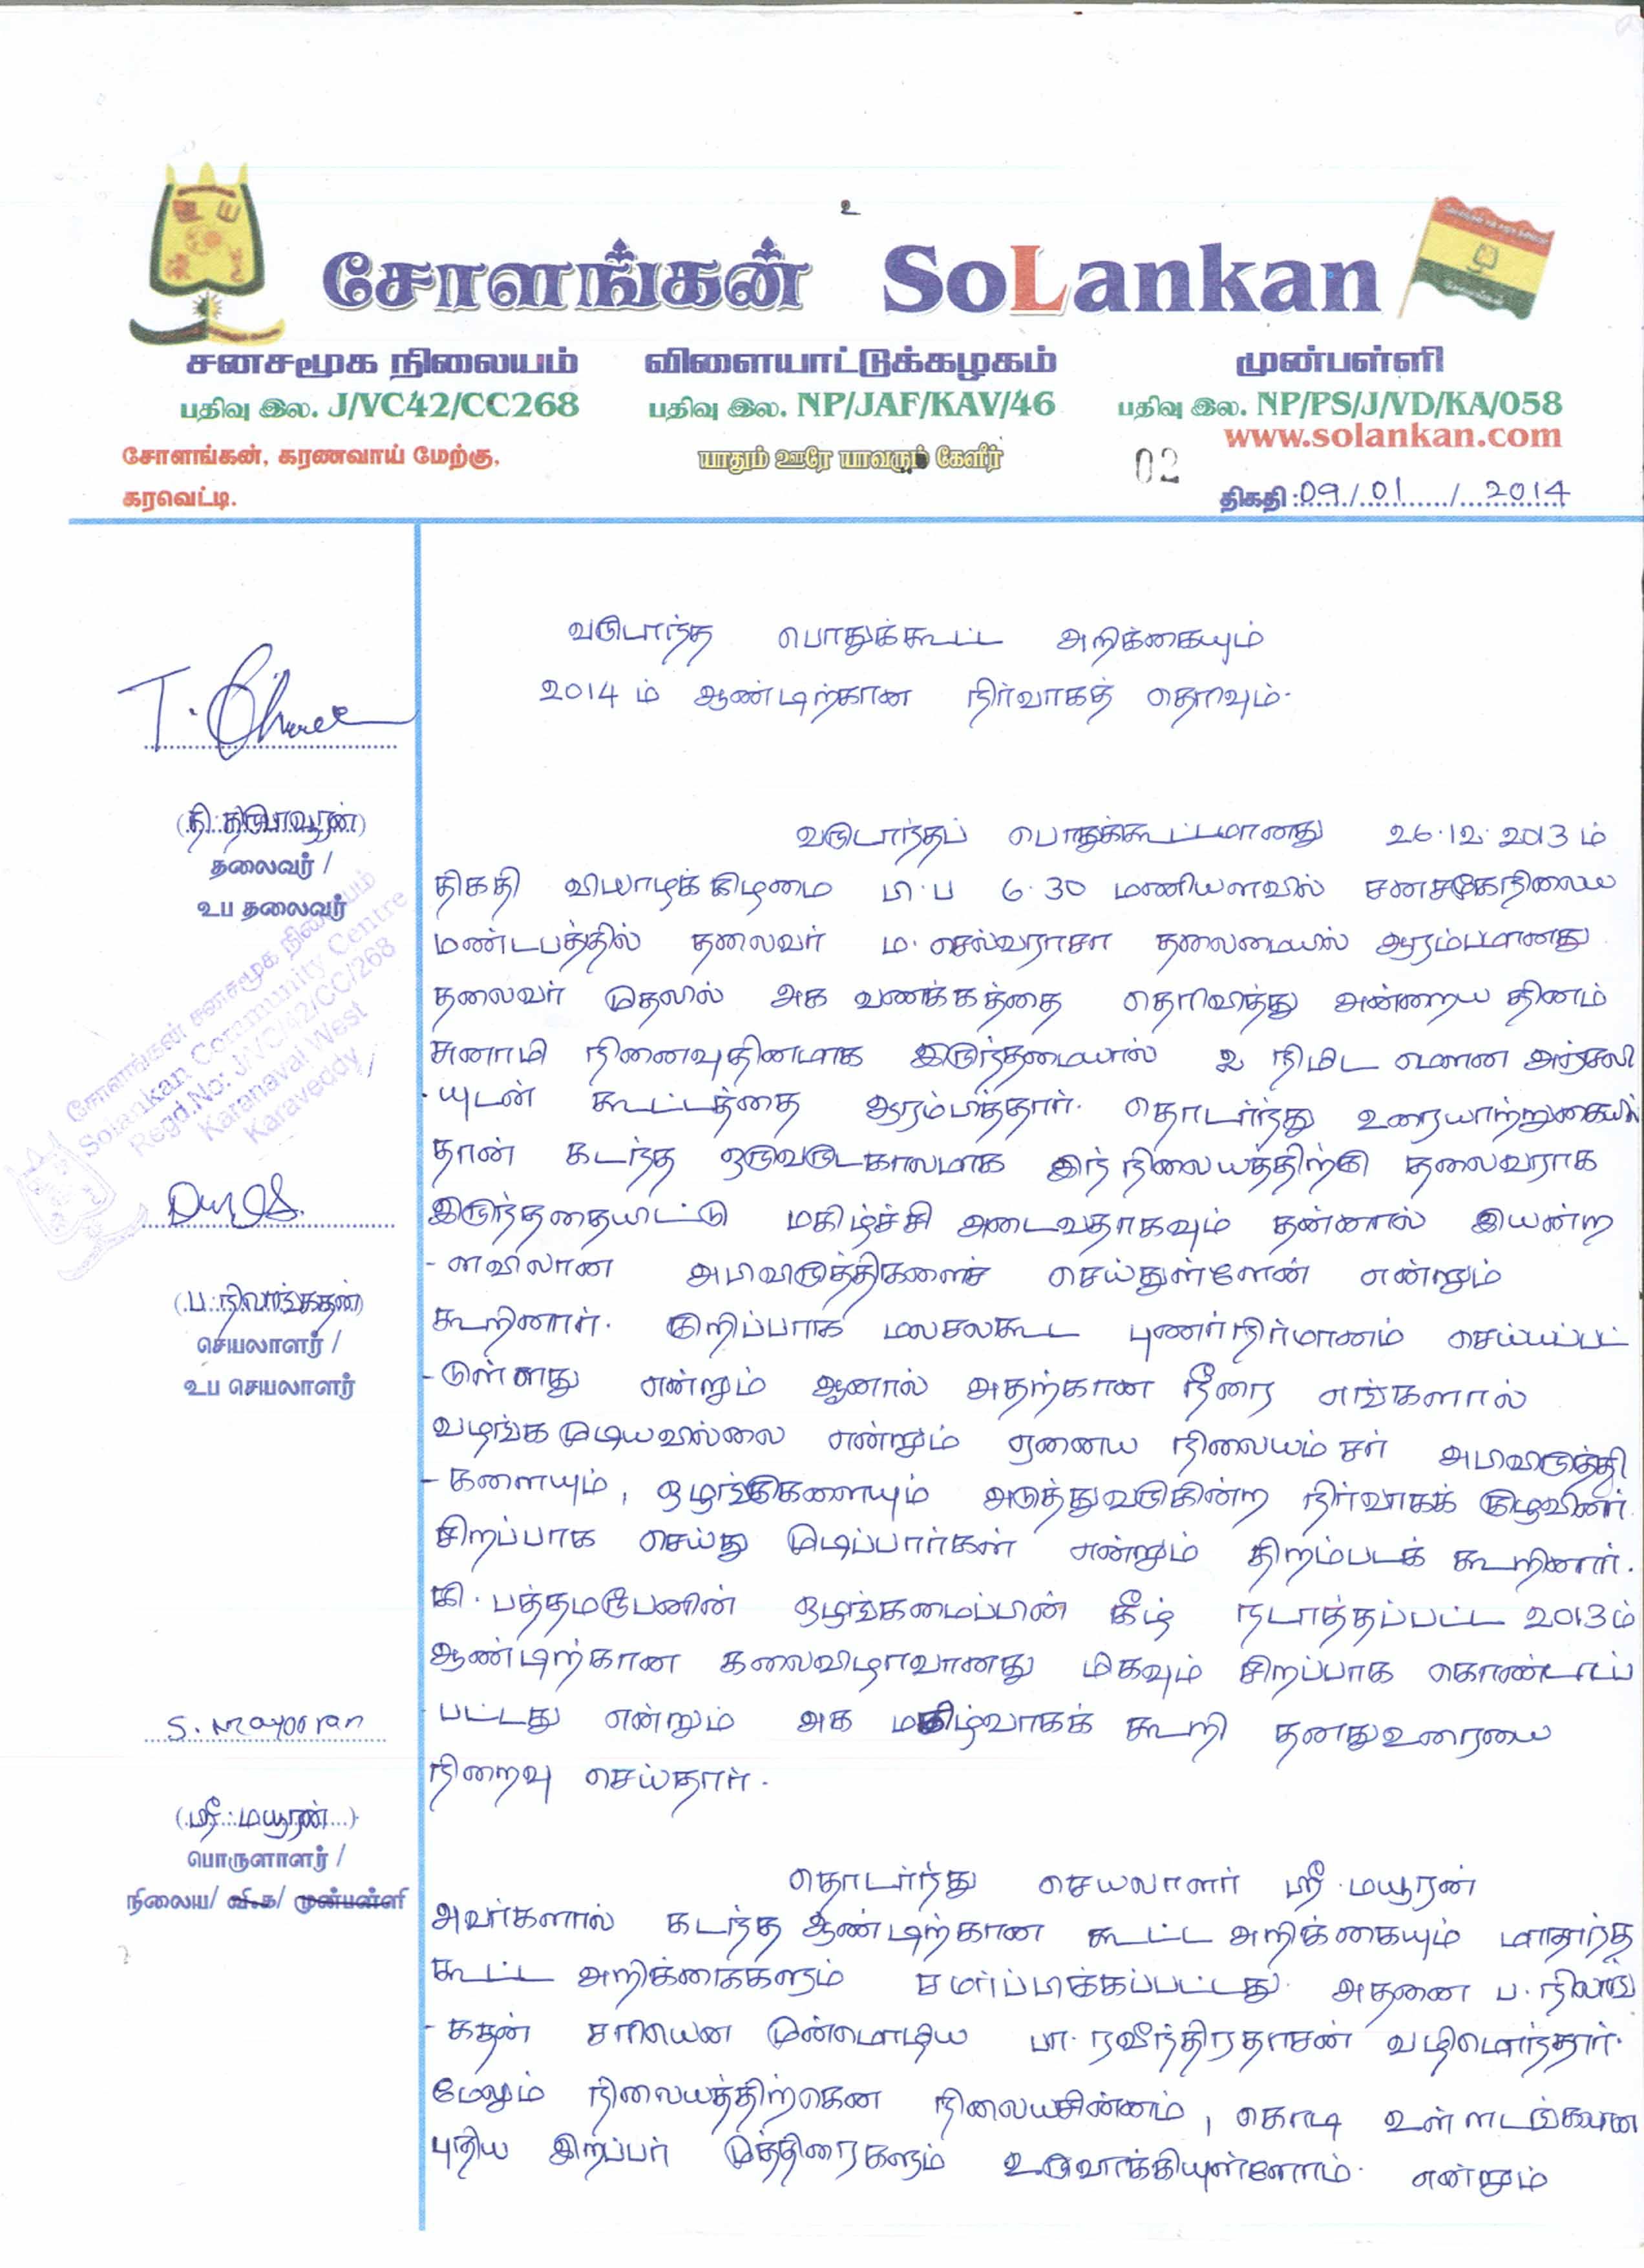 உ
சோளங்கன் SoLankan
சனசமூக நிலையம் விளையாட்டுக்கழகம் முன்பள்ளி
பதிவு இல. J/VC42/CC268 பதிவு இல. NP/JAF/KAV/46 பதிவு இல. NP/PS/J/VD/KA/058
www.solankan.com
சோளங்கன், கரணவாய் மேற்கு, யாதும் ஊரே யாவரும் கேளீர் 02
கரவெட்டி. திகதி :09/01/2014
வருடாந்த பொதுக்கூட்ட அறிக்கையும்
2014 ம் ஆண்டிற்கான நிர்வாகத் தெரிவும்.
வருடாந்தப் பொதுக்கூட்டமானது 26.12.2013 ம்
திகதி வியாழக்கிழமை பி.ப 6.30 மணியளவில் சனசமூகநிலைய
மண்டபத்தில் தலைவர் ம.செல்வராசா தலைமையில் ஆரம்பமானது
தலைவர் முதலில் அக வணக்கத்தை தெரிவித்து அன்றைய தினம்
சுனாமி நினைவுதினமாக இருந்தமையால் 2 நிமிட மௌன அஞ்சலி
-யுடன் கூட்டத்தை ஆரம்பித்தார். தொடர்ந்து உரையாற்றுகையில்
தான் கடந்த ஒருவருடகாலமாக இந் நிலையத்திற்கு தலைவராக
இருந்ததையிட்டு மகிழ்ச்சி அடைவதாகவும் தன்னால் இயன்ற
-ளவிலான அபிவிருத்திகளைச் செய்துள்ளேன் என்றும்
கூறினார். குறிப்பாக மலசலகூட புணர்நிர்மாணம் செய்யப்பட்
-டுள்ளது என்றும் ஆனால் அதற்கான நீரை எங்களால்
வழங்க முடியவில்லை என்றும் ஏனைய நிலையம் சார் அபிவிருத்தி
-களையும், ஒழுங்குகளையும் அடுத்துவருகின்ற நிர்வாகக் குழுவினர்
சிறப்பாக செய்து முடிப்பார்கள் என்றும் திறம்படக் கூறினார்.
கி. பத்தமரூபனின் ஒழுங்கமைப்பின் கீழ் நடாத்தப்பட்ட 2013ம்
ஆண்டிற்கான கலைவிழாவானது மிகவும் சிறப்பாக கொண்டாடப்
பட்டது என்றும் அக மகிழ்வாகக் கூறி தனதுஉரையை
நிறைவு செய்தார்.
தொடர்ந்து செயலாளர் ஸ்ரீ.மயூரன்
அவர்களால் கடந்த ஆண்டிற்கான கூட்ட அறிக்கையும் மாதாந்த
கூட்ட அறிக்கைகளும் சமர்ப்பிக்கப்பட்டது. அதனை ப.நிலாங்
-கதன் சரியென முன்மொழிய பா.ரவீந்திரதாசன் வழிமொழிந்தார்.
மேலும் நிலையத்திற்கென நிலையசின்னம், கொடி உள்ளடங்கலான
புதிய இறப்பர் முத்திரைகளும் உருவாக்கியுள்ளோம். என்றும்
தலைவர் /
உப தலைவர்
சோளங்கன் சனசமூக நிலையம்
Solankan Community Centre
Regd.No: J/VC/42/CC/268
Karanavai West
Karaveddy
(ப.நிலாங்கதன்)
செயலாளர் /
உப செயலாளர்
S. Mayooran
(ஸ்ரீ.மயூரன்)
பொருளாளர் /
நிலைய/ வி.க/ முன்பள்ளி